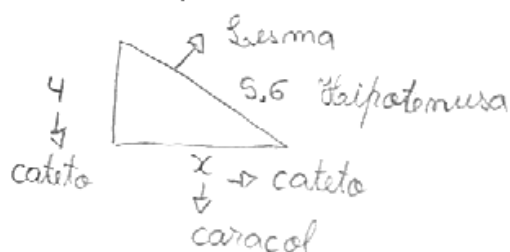 Lesma
4
5,6 Hipotenusa
cateto
x
cateto
caracol